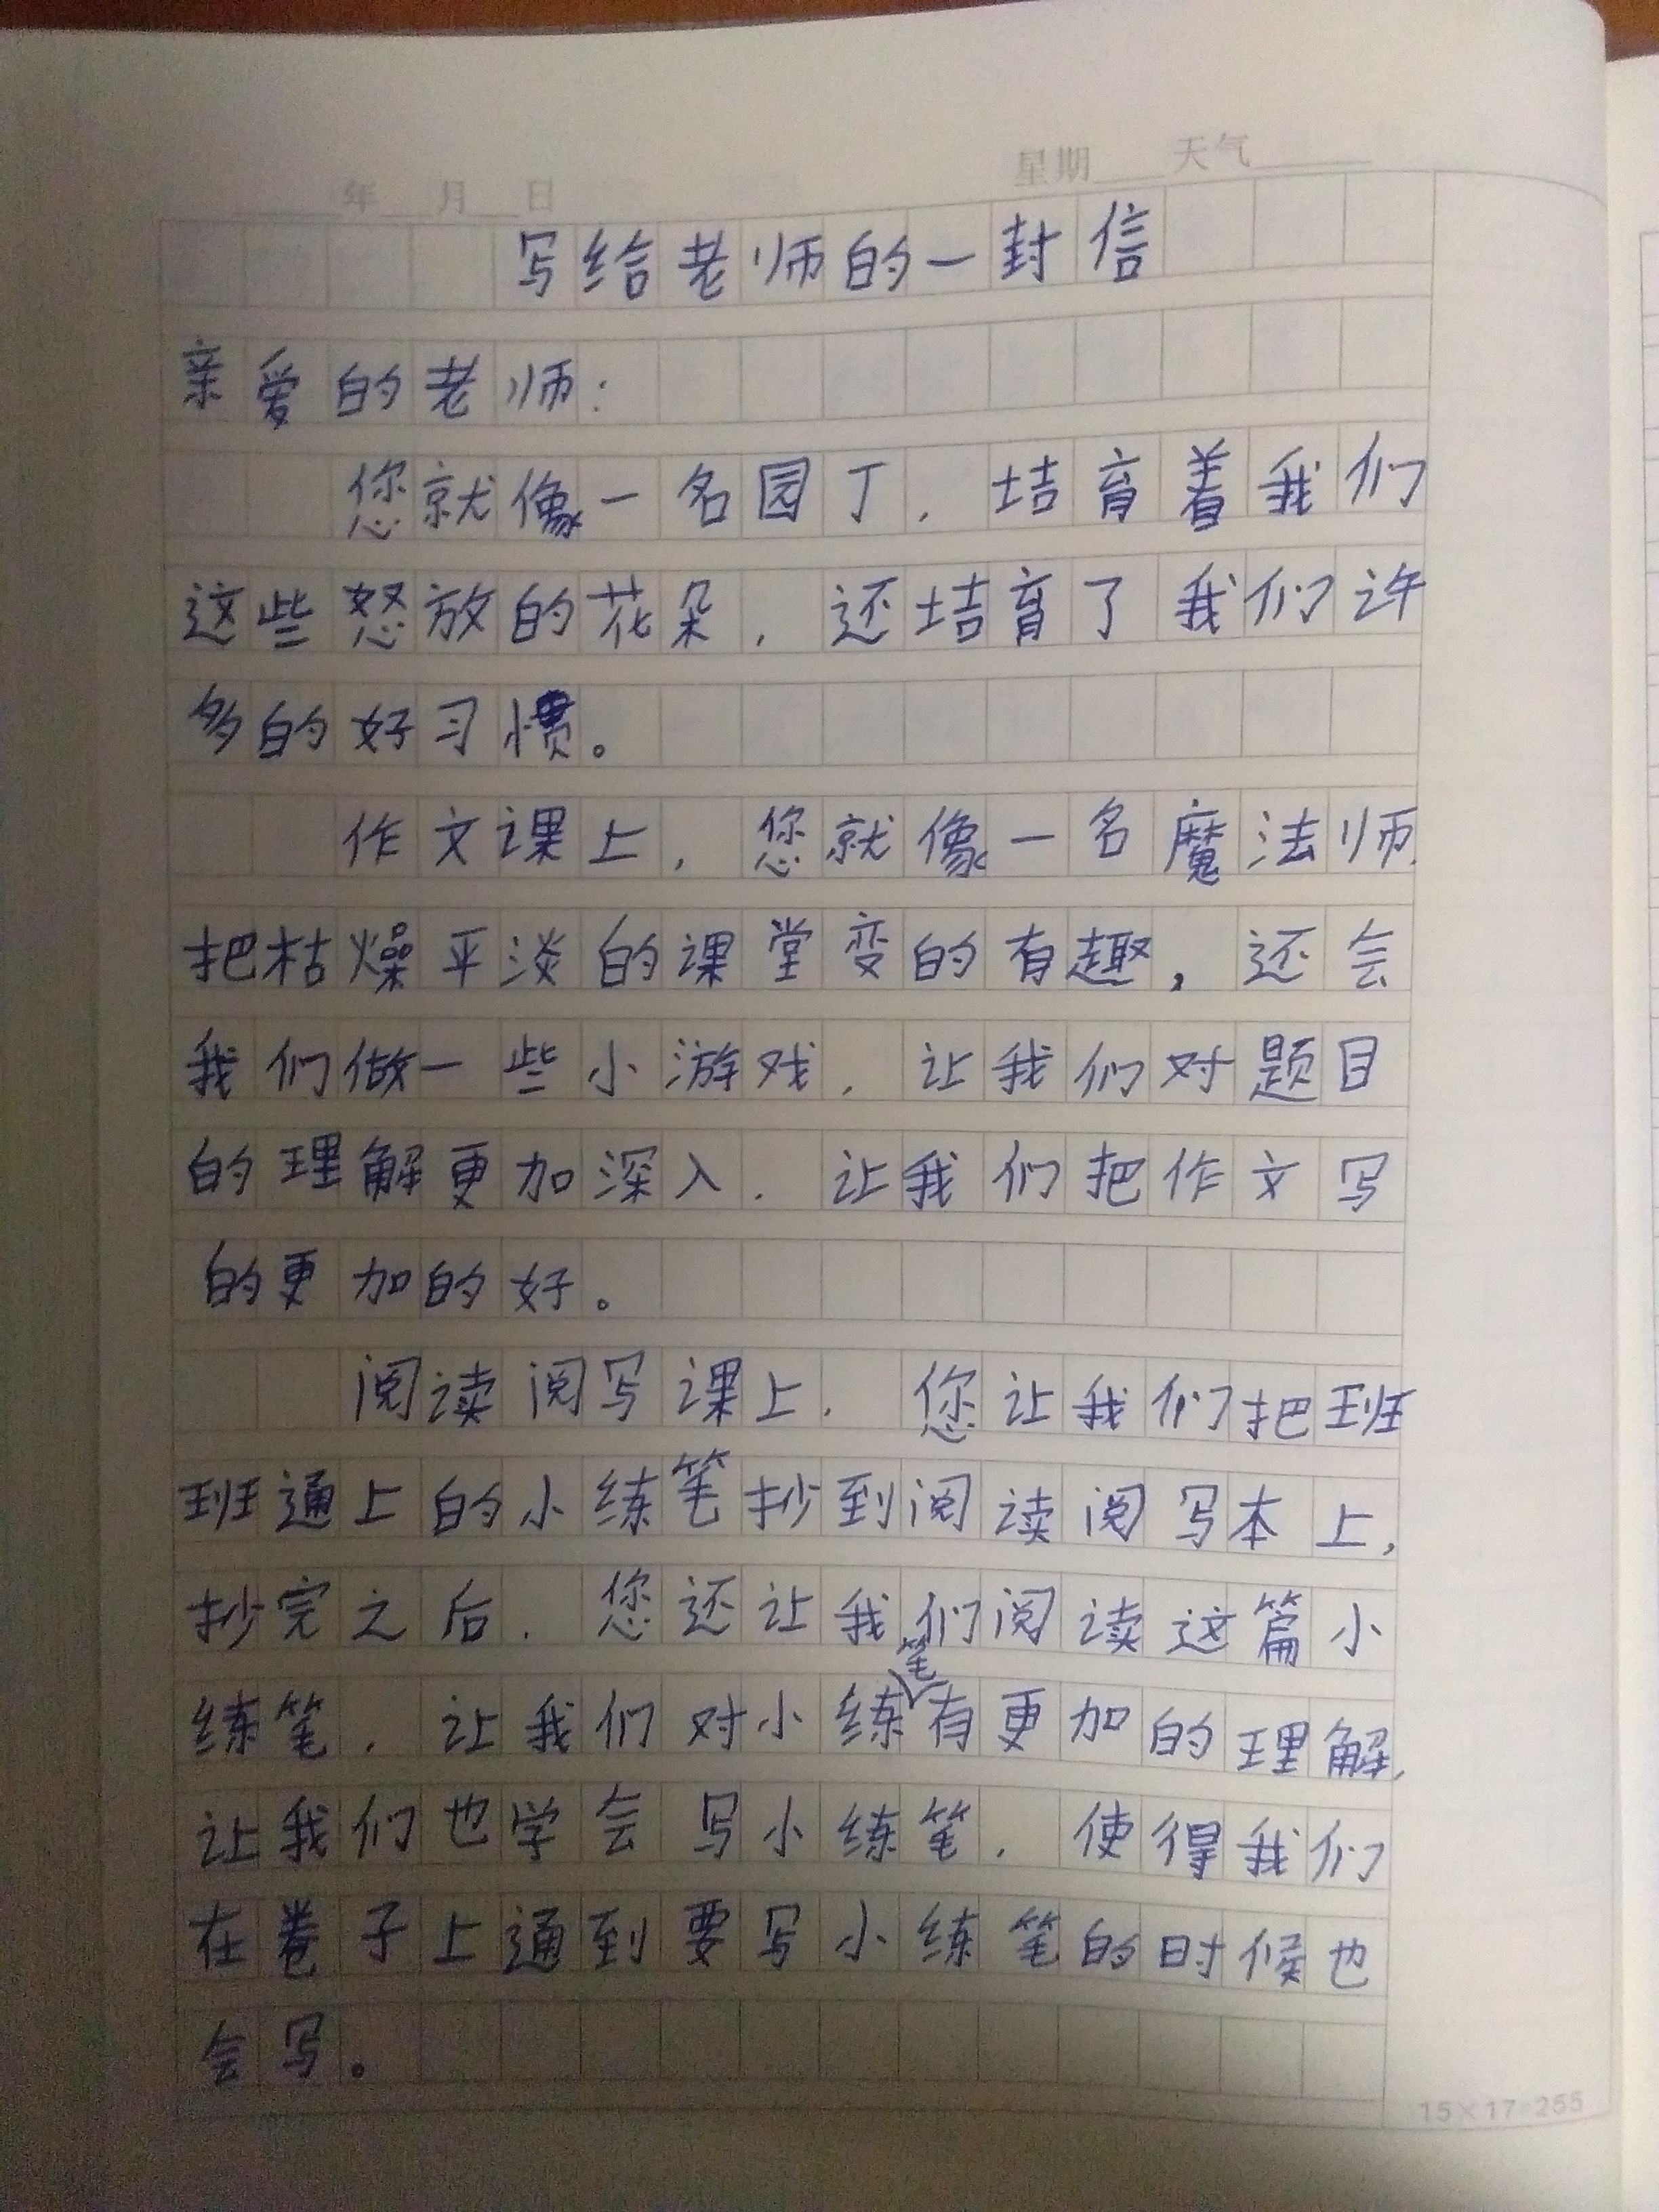 年 月 日 星期 天气
写给老师的一封信
亲爱的老师:
您就像一名园丁,培育着我们
这些怒放的花朵,还培育了我们许
多的好习惯。
作文课上,您就像一名魔法师,
把枯燥平淡的课堂变的有趣,还会
我们做一些小游戏,让我们对题目
的理解更加深入,让我们把作文写
的更加的好。
阅读阅写课上,您让我们把班
班通上的小练笔抄到阅读阅写本上,
抄完之后,您还让我们阅读这篇小
练笔,让我们对小练笔有更加的理解,
让我们也学会写小练笔,使得我们
在卷子上通到要写小练笔的时候也
会写。
15×17=255